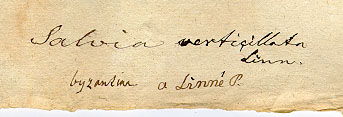 Salvia verticillata
Linn.
byzantina a Linné P.